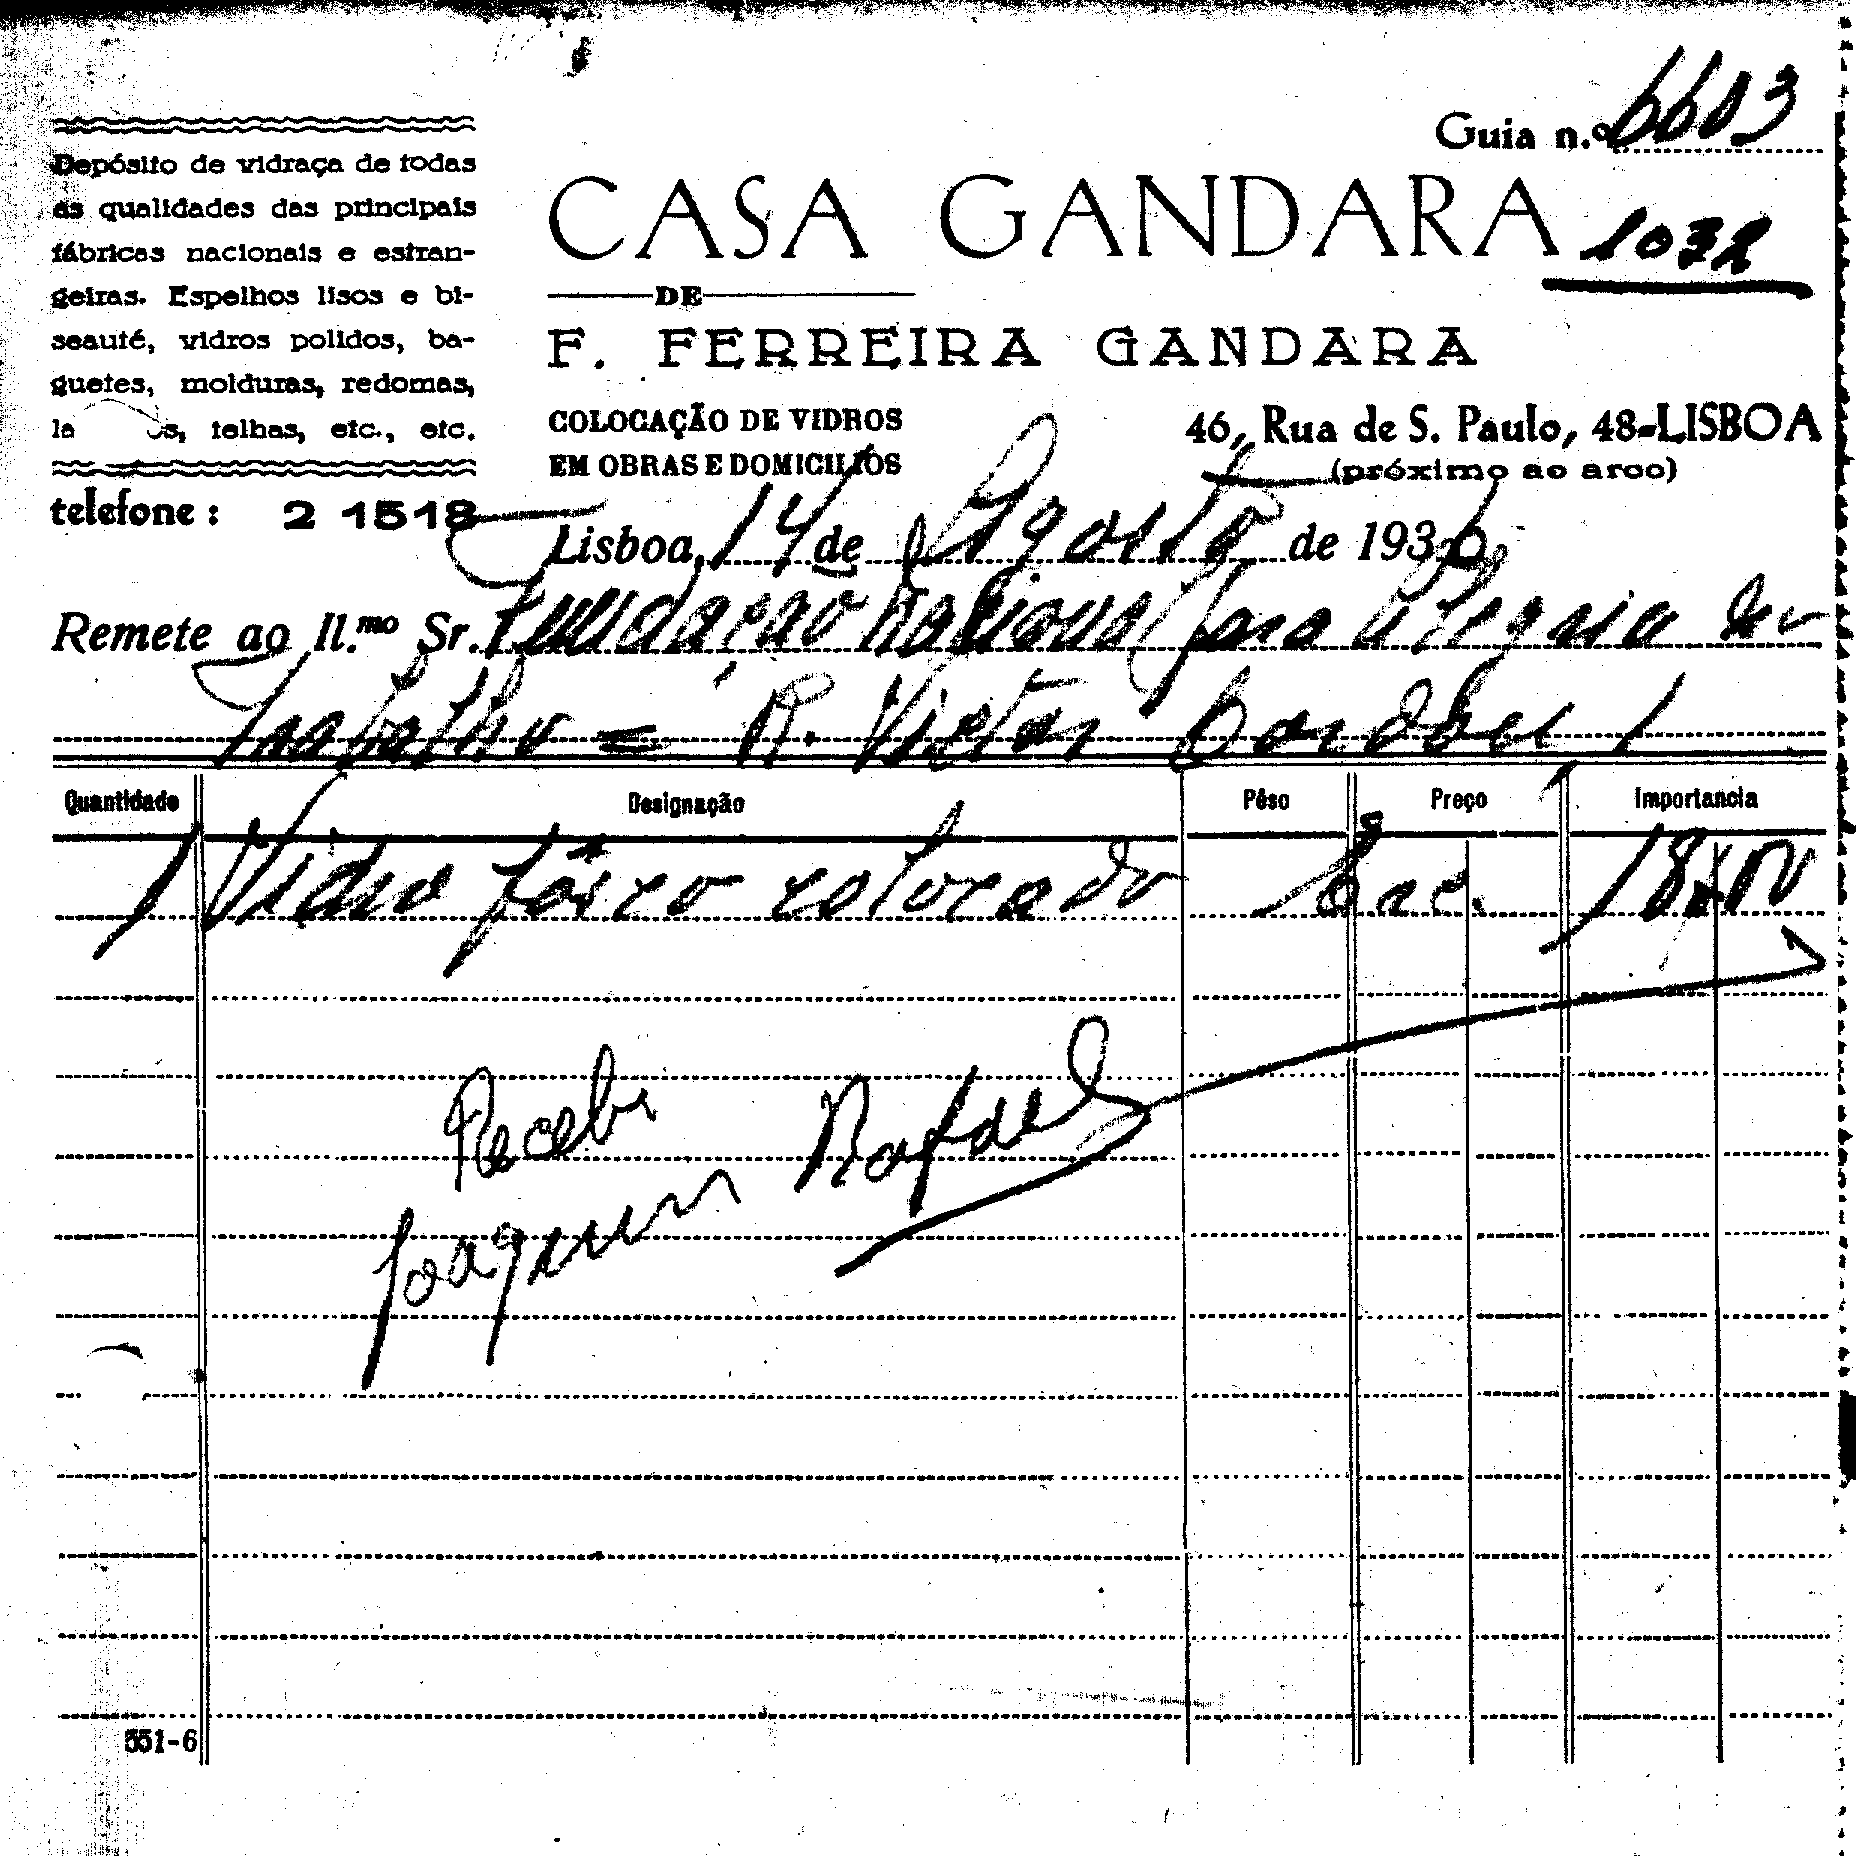 Guia n.º 6603
Depósito de vidraça de todas
as qualidades das principais
fábricas nacionais e estran-
geiras. Espelhos lisos e bi-
seauté, vidros polidos, ba-
guetes, molduras, redomas,
telhas, etc., etc.
telefone : 2 1518
CASA GANDARA
1032
DE
F. FERREIRA GANDARA
COLOCAÇÃO DE VIDROS
EM OBRAS E DOMICILIOS
46, Rua de S. Paulo, 48-LISBOA
(próximo ao arco)
Lisboa, 14 de Agosto de 193
Remete ao Il.mo Sr. Fundação Nacional para Alegria no
Trabalho = R. Victor Cordon 1
Quantidade Designação Pêso Preço Importancia
1 Vidro fôsco colocado 18$00
Recebi
Joaquim Rafael
551-6